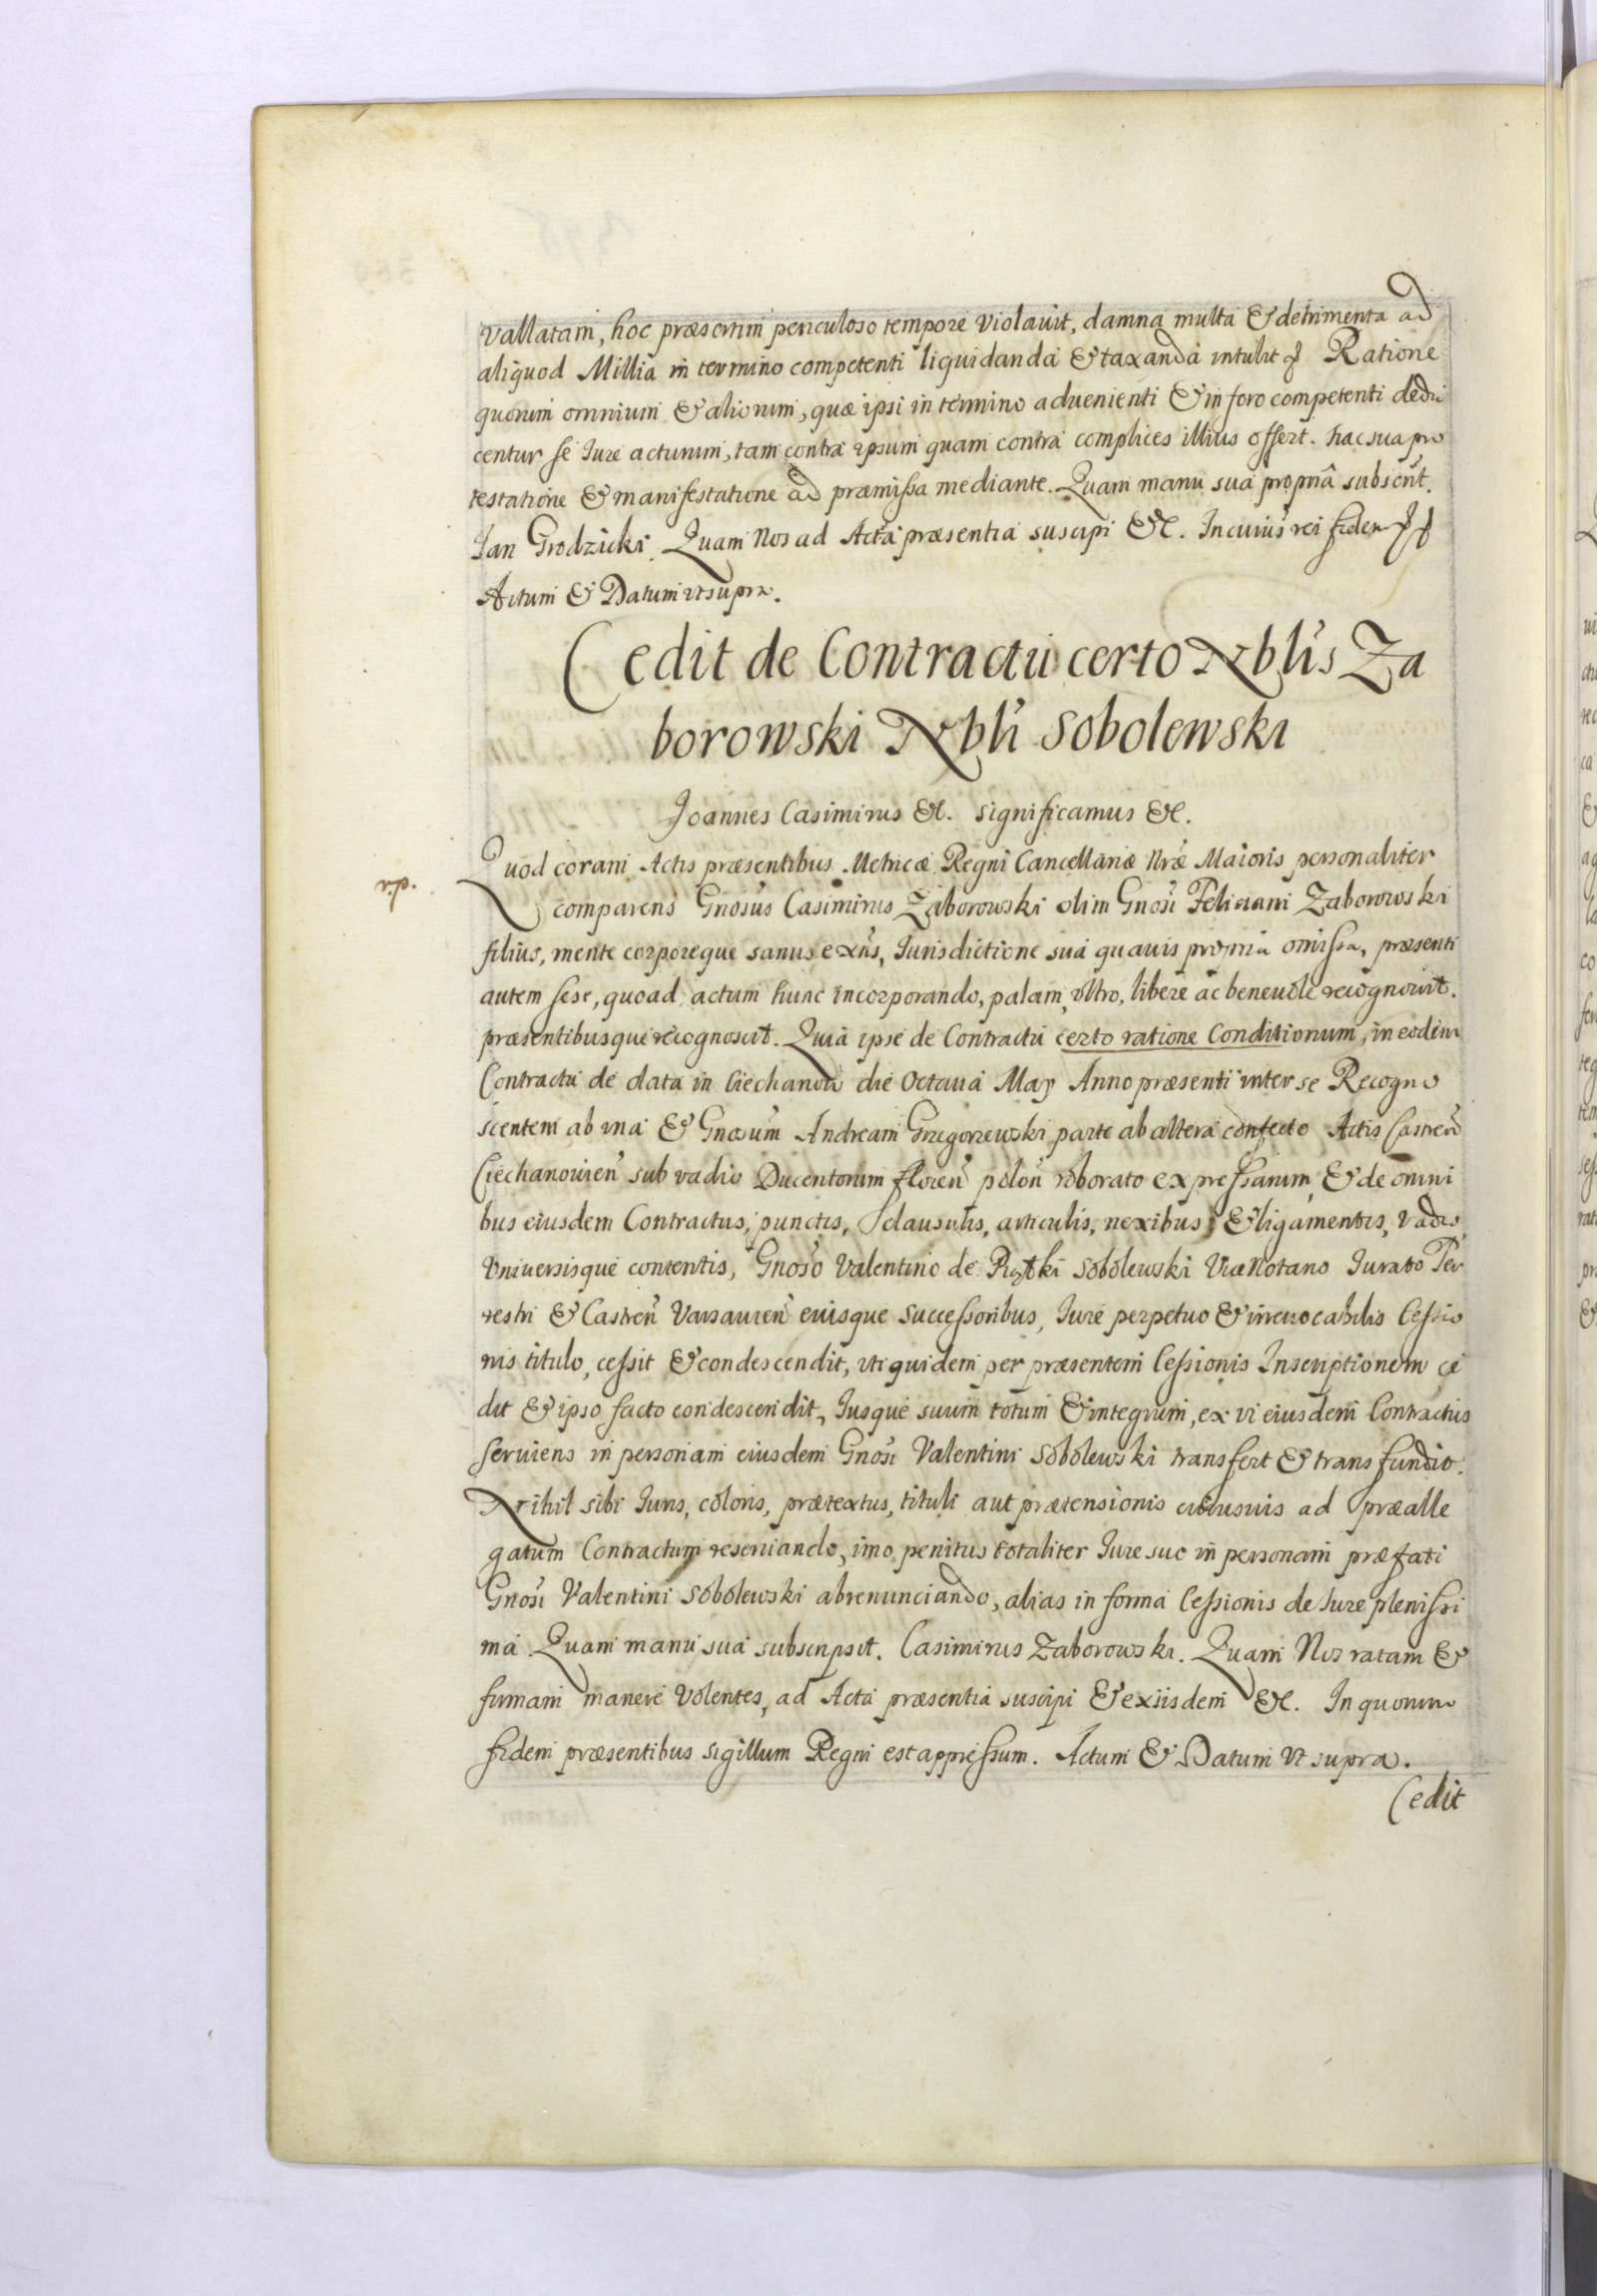 vallatam, hoc præsertim periculoso tempore violavit, damna multa & detrimenta ad
aliquod Millia in termino competenti liquidanda & taxanda intulit Ratione
quorum omnium & aliorum, quæ ipsi in termino aduenienti & in foro competenti dedu
centur se Iure acturum, tam contra ipsum quam contra complices illius offert. hac sua pro
testatione & manifestatione ad præmissa mediante. Quam manu sua propriâ subscrit.
Jan Grodzicki. Quam Nos ad Acta præsentia suscipi &c. In cuius rei fidem
Actum & Datum ut supra.
Cedit de Contractu certo Nblis Za
borowski Nbli Sobolewski
Joannes Casimirus &c. significamus &c.
Quod coram Actis præsentibus Metricæ Regni Cancellariæ Nræ Maioris personaliter
comparens Gnosus Casimirus Zaborowski olim Gnosi Feliciani Zaborowski
filius, mente corporeque sanus exñs, Iurisdictione sua quauis propria omissa, præsenti
autem sese, quoad actum hunc incorporando, palam, ultro, libere ac beneuole recognouit.
præsentibusque recognoscit. Quia ipse de Contractu certo ratione Conditionum, in eodem
Contractu de data in Ciechanow die Octaua Maij Anno præsenti inter se Recogno
scentem ab una & Gnosum Andream Grzegorzewski parte ab altera confecto Actis Castreñ
Ciechanouieñ sub vadio Ducentorum floreñ poloñ roborato expressarum, & de omni
bus eiusdem Contractus, punctis, clausulis, articulis, nexibus, & ligamentis, vadiis,
Vniuersisque contentis, Gnoso Valentino de Sobolewski Vice Notario Iurato Ter
restri & Castreñ Varsauieñ eiusque successoribus, Iure perpetuo & irreuocabilis Cessio
nis titulo, cessit & condescendit, uti quidem per præsentem Cessionis Inscriptionem ce
dit & ipso facto condescendit, Iusque suum totum & integrum, ex vi eiusdem Contractus
seruiens in personam eiusdem Gnosi Valentini Sobolewski transfert & transfundit.
Nihil sibi Iuris, coloris, prætextus, tituli aut prætensionis cuiusuis ad præalle
gatum Contractum reseruando, imo penitus totaliter Iure suo in personam præfati
Gnosi Valentini Sobolewski abrenunciando, alias in forma Cessionis de Iure plenissi
ma. Quam manu sua subscripsit. Casimirus Zaborowski. Quam Nos ratam &
firmam manere volentes, ad Acta præsentia suscipi & ex iisdem &c. In quorum
fidem præsentibus sigillum Regni est appressum. Actum & Datum ut supra.
Cedit